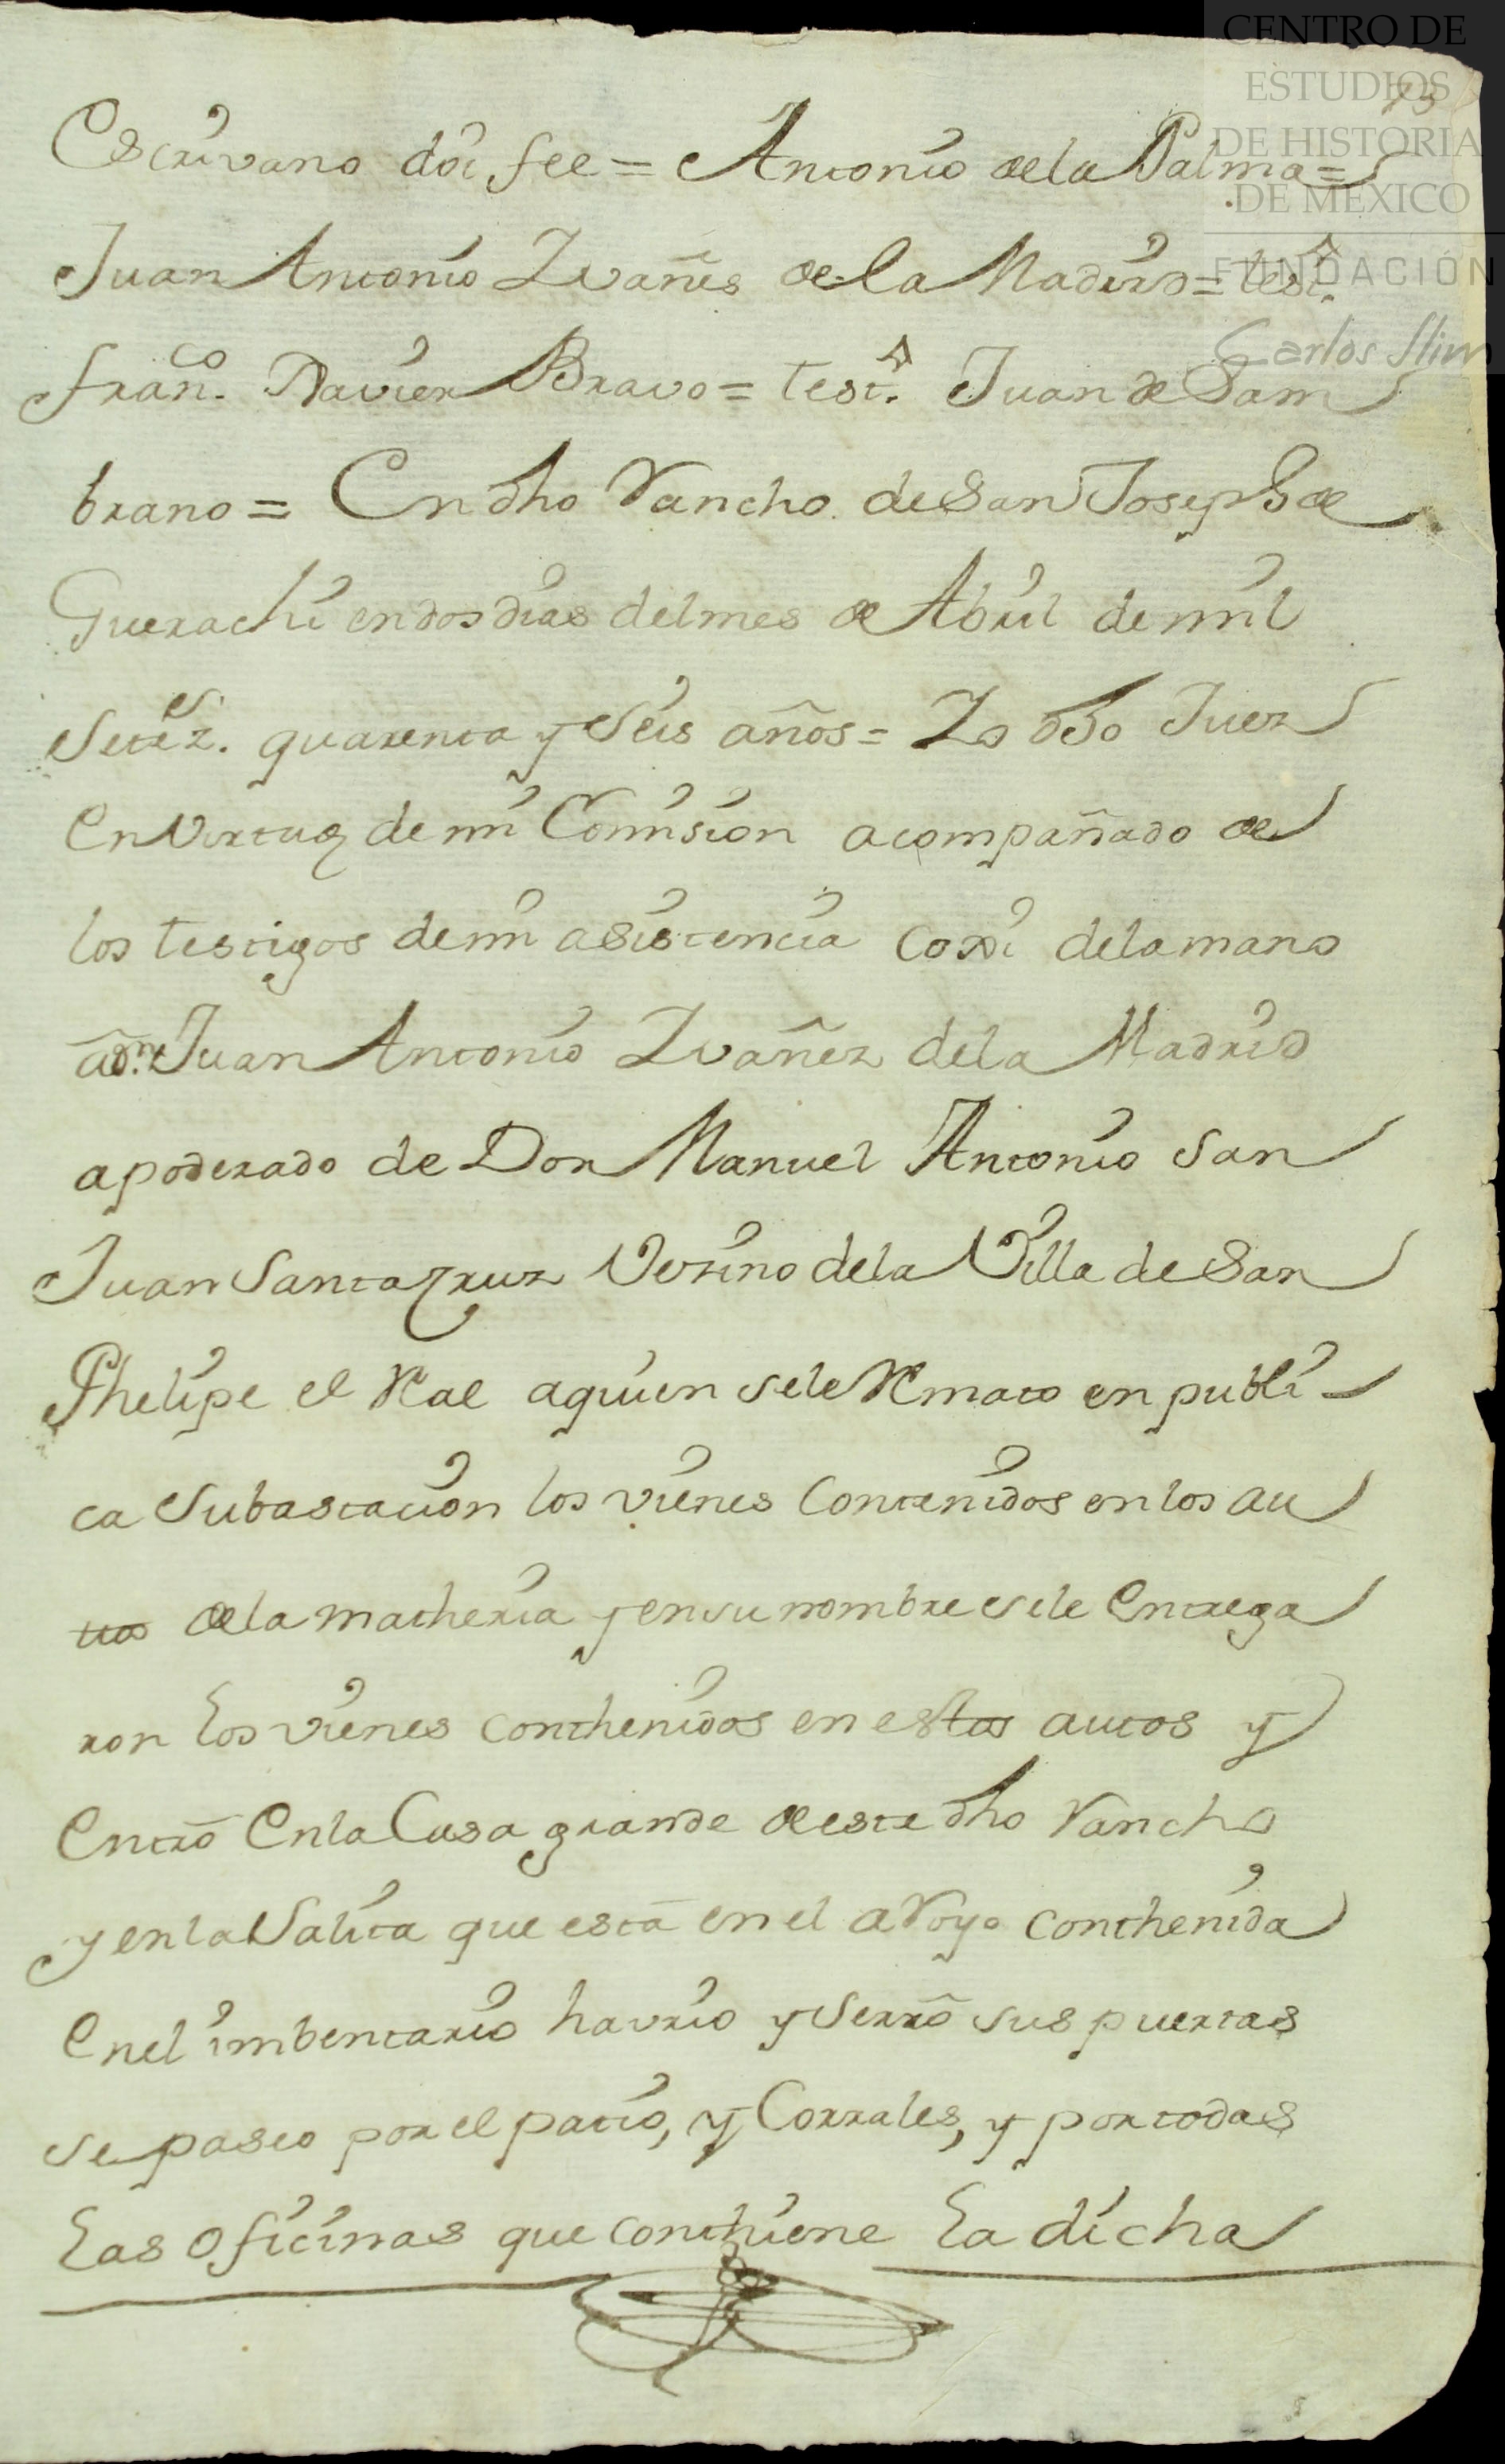 CENTRO DE
ESTUDIOS
DE HISTORIA
DE MÉXICO
FUNDACIÓN
Carlos Slim
Escrivano doi fee = Antonio de la Palma =
Juan Antonio Ivañes de la Madrid = test.º
fran.co Xavier Bravo = test.º Juan de Sam
brano = En dho Rancho de San Joseph de
Guerachi en dos dias del mes de Abril de mil
Setez.s quarenta y Seis años = Yo dho Juez
en Virtud de mi Comision acompañado de
los testigos de mi asistencia coxi de la mano
a D.n Juan Antonio Ivañez de la Madrid
apoderado de Don Manuel Antonio San
Juan Santa Cruz Vezino de la Villa de San
Phelipe el Real a quien se le Remato en publi-
ca Subastacion los vienes Contenidos en los au
tos de la matheria y en su nombre se le Entrega
ron los vienes conthenidos en estos autos y
Entró En la Casa grande de este dho Rancho
y en la Salita que está en el aRoyo conthenida
En el imbentario havrio y Serró sus puertas
se paseo por el patio, y Corrales, y por todas
las oficinas que conthiene la dicha